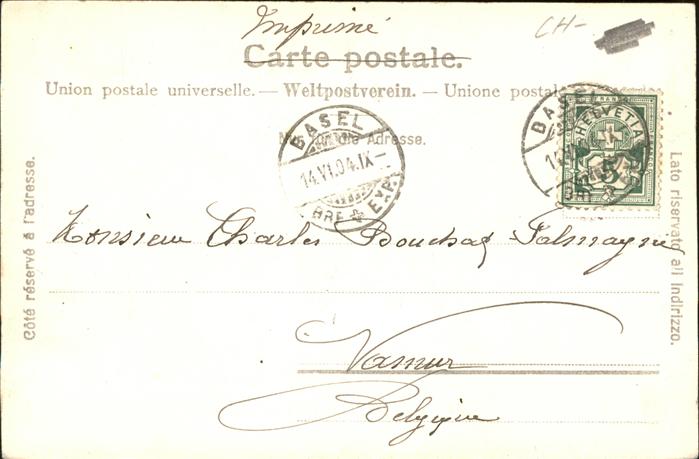 Imprimé
CH-
Carte postale.
Union postale universelle. — Weltpostverein. — Unione postale
Nur für die Adresse.
BASEL
14.VI.04.IX-
BRF. EXP.
BASEL
HELVETIA
FRANCO
5
Côté réservé à l'adresse.
Lato riservato all indirizzo.
Monsieur Charles
Namur
Belgique